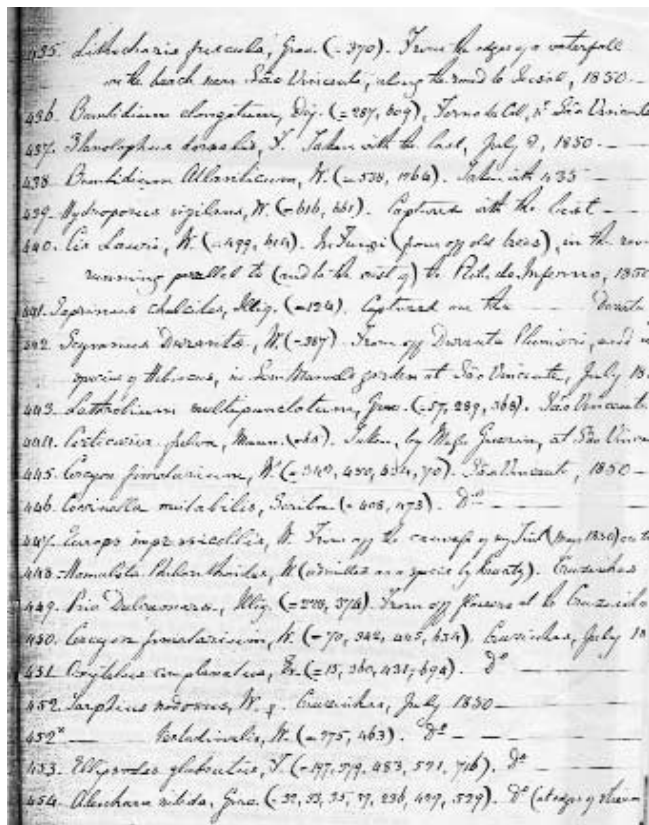 435. Lithocharis fuscula, Grav. (=370). From the edges of a waterfall
on the beach near São Vincente, along the road to Seisal, 1850.—
436. Bembidium elongatum, Dej. (=287, 609), São Vincente
437. dorsalis, Taken with the last, July 9, 1850.—
438. Bembidium Atlanticum, W. (=538, 1764). Taken with 435—
439. Hydroporus vigilans, W. (=616, 661). Captured with the last—
440. Cis Lauri, W. (=499, 614). In Fungi (from off old trees), in the
running parallel to (and to the east of) the Rib. do Inferno, 1850
441. Saprinus chalcites, Illig. (=124). Captured on the Duranta
442. Scymnus Durantæ, W. (=387). From off Duranta Plumieri, and
species of Hibiscus, in garden at São Vincente, July 18
443. Lathrobium multipunctatum, Grav. (=57, 289, 368). São Vincente
444. Corticaria fulva, Taken, by at São Vincen
445. Cercyon fimetarium, W. (=342, 450, 634, 70). São Vincente, 1850—
446. Coccinella mutabilis, Scriba (=408, 473). Do—
447. Europs impressicollis, W. From off the canvass of my Tent (May 1850)
448. Homalota Philonthoides, W (admitted as a species by Kraatz). Cruzinhas
449. Pria Dulcamaræ, Illig. (=298, 374). From off flowers at the Cruzinhas
450. Cercyon fimetarium, W. (=70, 342, 445, 634). Cruzinhas, July 18
451. Oxytelus complanatus, Er. (=15, 360, 431, 694). Do—
452. Tarphius nodosus, W. Cruzinhas, July 1850—
452x — testudinalis, W. (=275, 463). Do—
453. Ellipsodes glabratus, (=197, 279, 483, 521, 716). Do—
454. Aleochara nitida, Grav. (=32, 33, 35, 37, 236, 427, 529). Do (at edges of stream